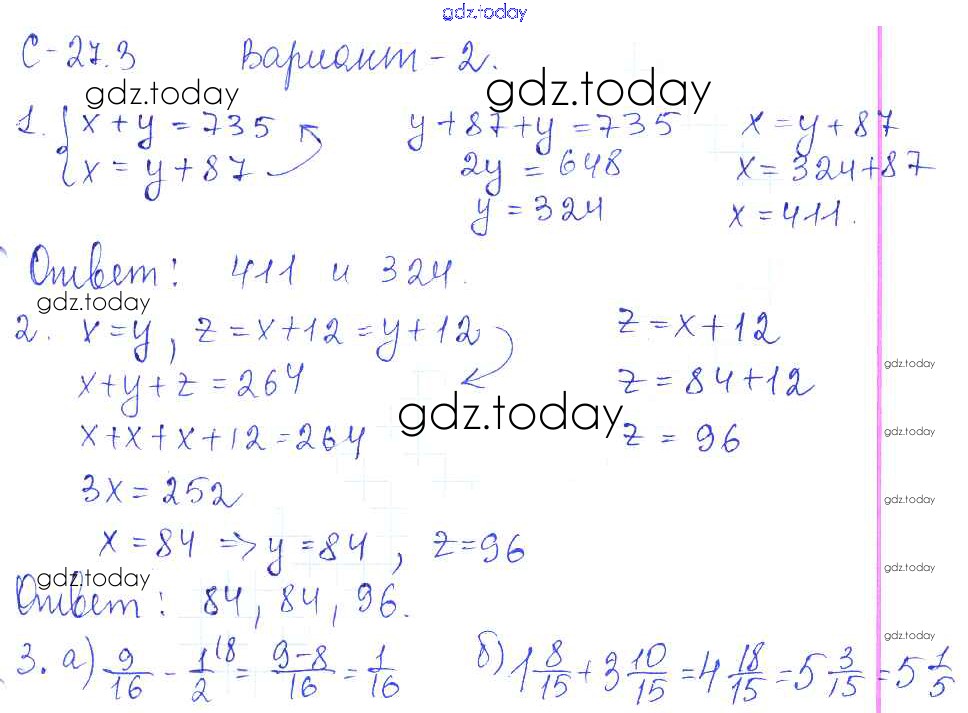 gdz.today
С-27.3 Вариант-2.
gdz.today gdz.today
1. { x+y=735 y+87+y=735 x=y+87
x=y+87 2y=648 x=324+87
y=324 x=411.
Ответ: 411 и 324.
gdz.today
2. x=y, z=x+12=y+12 z=x+12
gdz.today
x+y+z=264 z=84+12
gdz.today
x+x+x+12=264 z=96
gdz.today
3x=252
gdz.today
x=84 => y=84, z=96
gdz.today gdz.today
Ответ: 84, 84, 96.
gdz.today
3. а) 9/16 - 1(8/2 = 9-8/16 = 1/16 б) 1 8/15 + 3 10/15 = 4 18/15 = 5 3/15 = 5 1/5